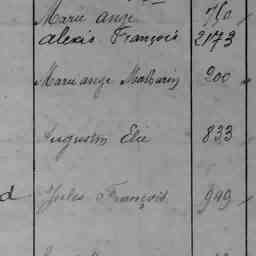 Marie ange 760
alexis François 2173
Marie ange Mathurin 900
Augustin Elie 833
d Jules François 949